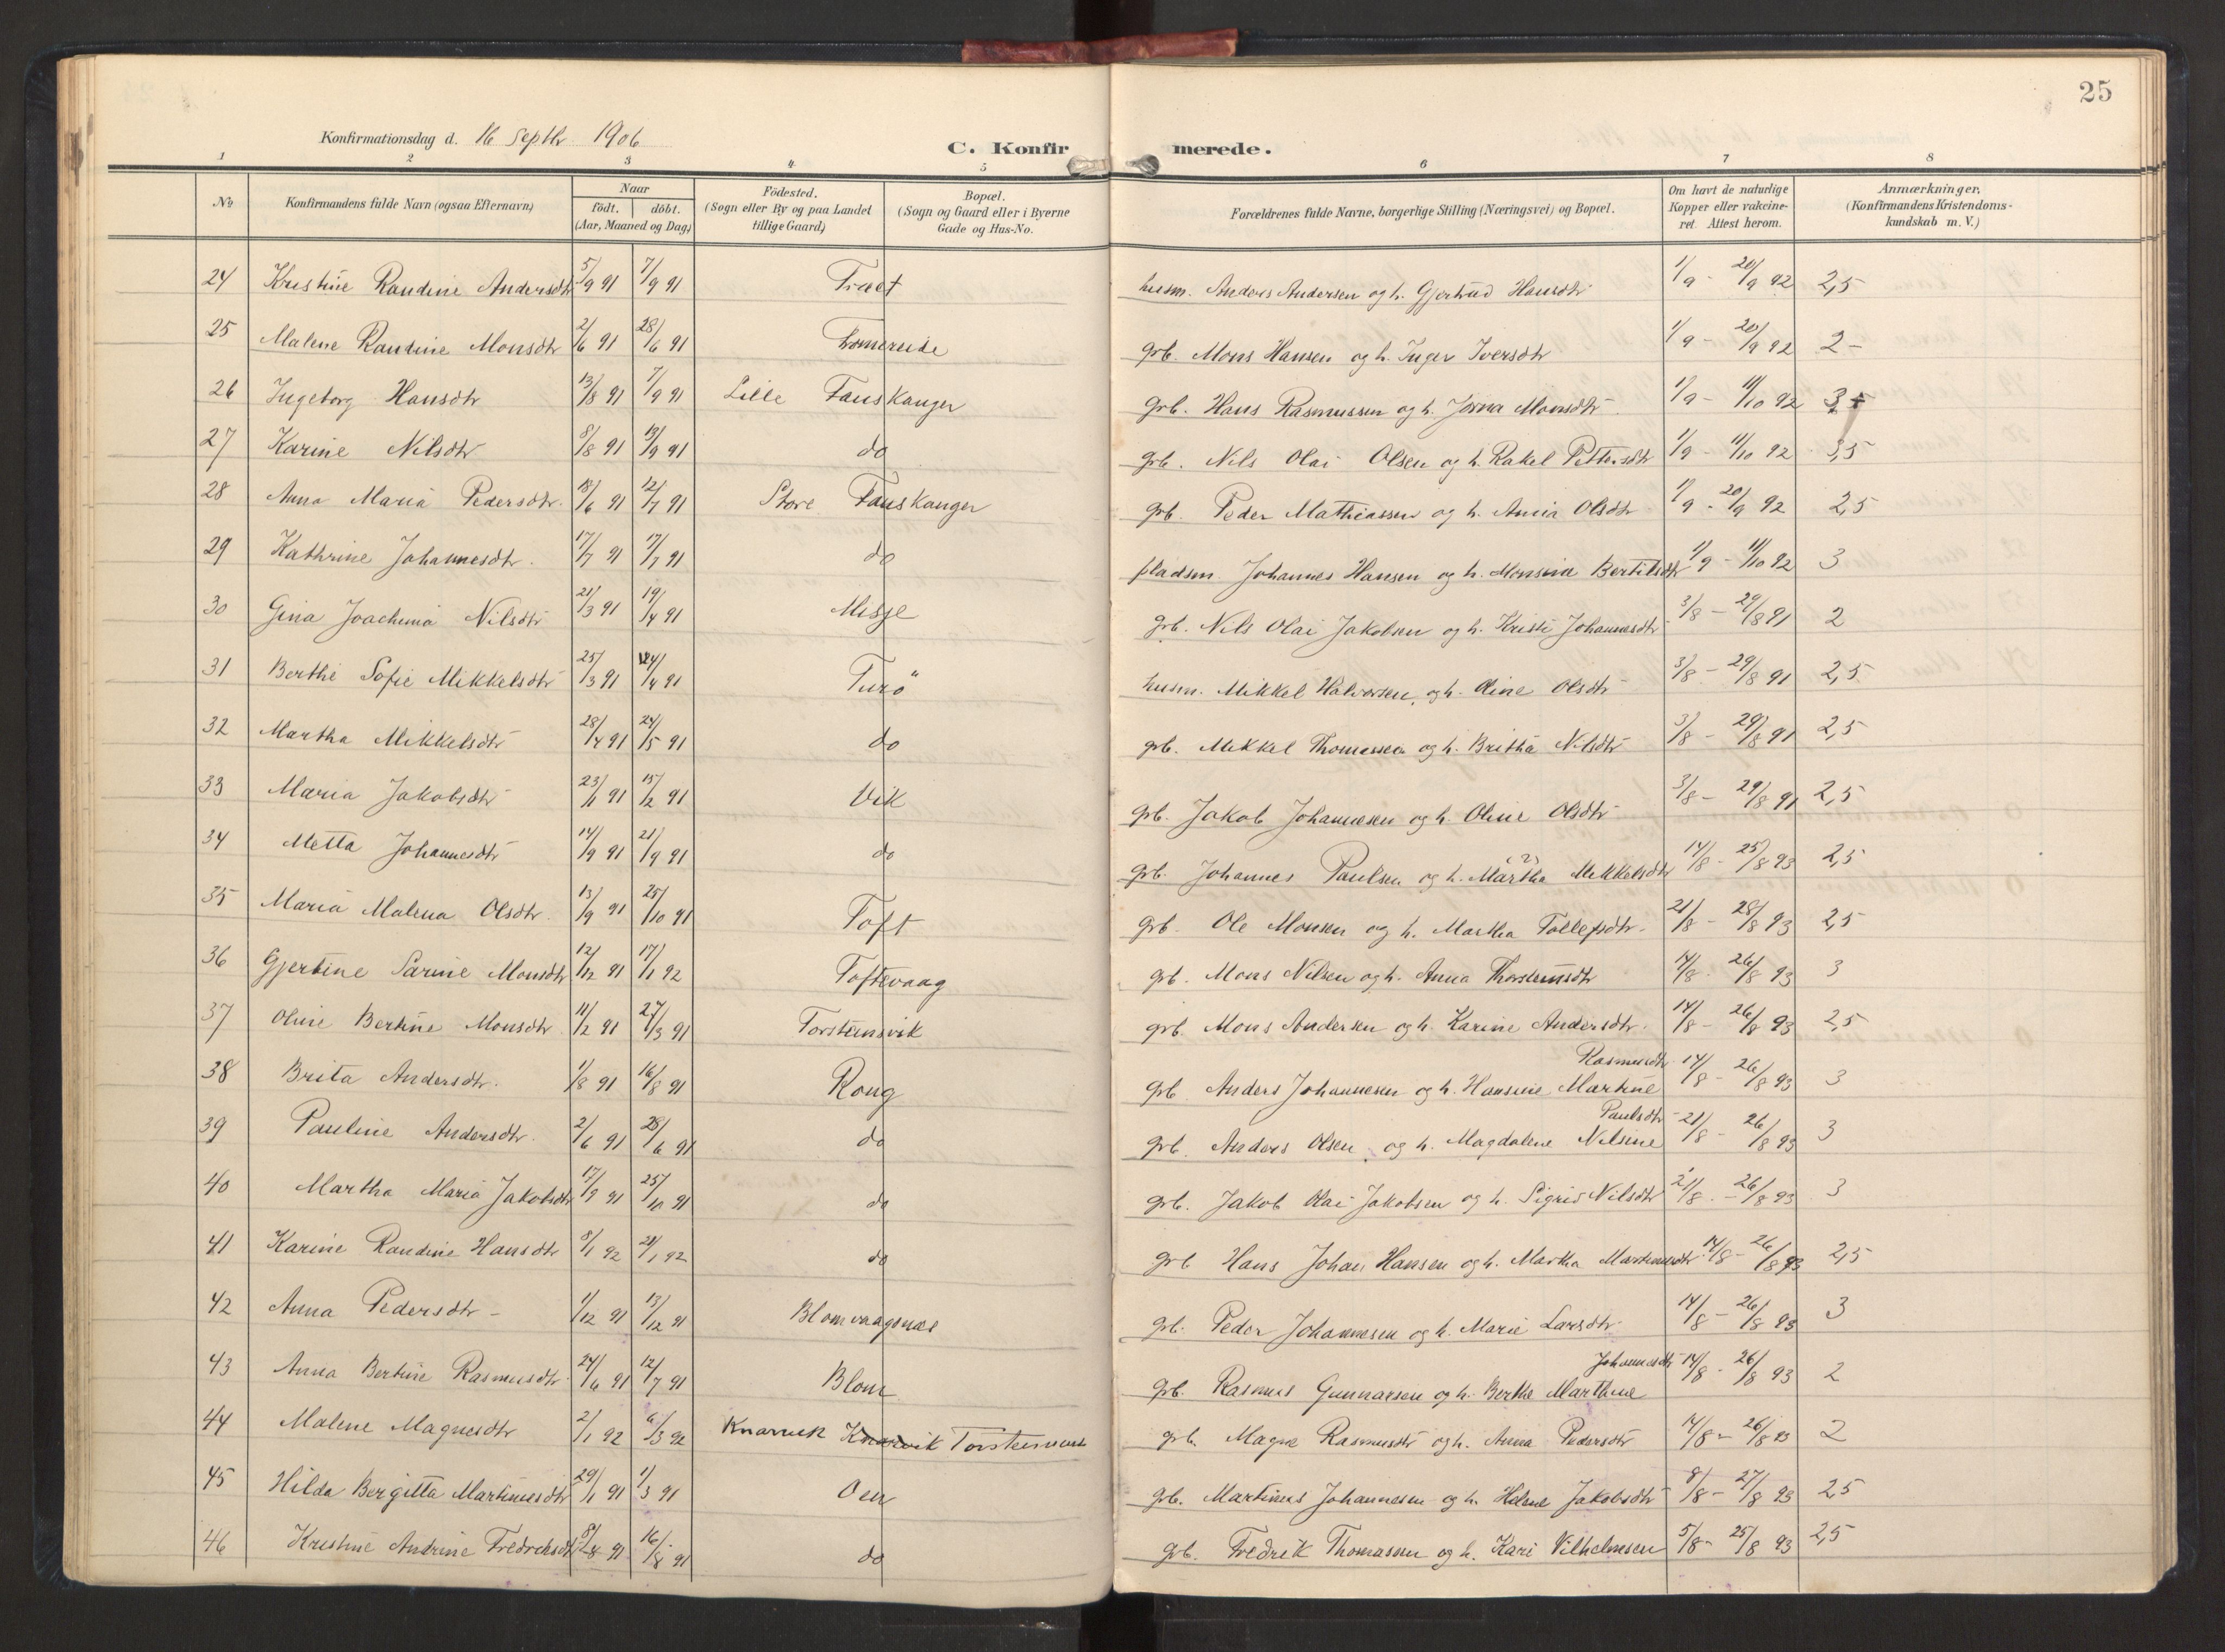 25
Konfirmationsdag d. 16 Septbr 1906
C. Konfirmerede.
1 2 3 4 5 6 7 8
No Konfirmandens fulde Navn (ogsaa Efternavn) Naar født. døbt. (Aar, Maaned og Dag) Födested. (Sogn eller By og paa Landet tillige Gaard) Bopæl. (Sogn og Gaard eller i Byerne Gade og Hus-No. Forældrenes fulde Navne, borgerlige Stilling (Næringsvei) og Bopæl. Om havt de naturlige Kopper eller vakcineret. Attest herom. Anmærkninger, (Konfirmandens Kristendomskundskab m. V.)
24 Kristine Randine Andersdtr 5/9 91 7/9 91 Træet husm. Anders Andersen og h. Gjertrud Hansdtr 1/9 - 20/9 92 2,5
25 Malene Randine Monsdtr 2/6 91 28/6 91 Tomereide grb. Mons Hansen og h. Inger Iversdtr 1/9 - 20/9 92 2 -
26 Ingeborg Hansdtr 13/8 91 7/9 91 Lille Fauskanger grb. Hans Rasmussen og h. Jorna Monsdtr 1/9 - 11/10 92 3
27 Karine Nilsdtr 8/8 91 13/9 91 do grb. Nils Olai Olsen og h. Rakel Pettersdtr 1/9 - 11/10 92 3,5
28 Anna Maria Pedersdtr. 18/6 91 12/7 91 Store Fauskanger grb. Peder Mathiassen og h. Anna Olsdtr 1/9 - 20/9 92 2,5
29 Kathrine Johannesdtr. 17/7 91 17/7 91 do pladsm. Johannes Hansen og h. Monsina Bertilsdtr 1/9 - 11/10 92 3
30 Gina Joachima Nilsdtr 21/3 91 19/4 91 Misje grb. Nils Olai Jakobsen og h. Kristi Johannesdtr 3/8 - 29/8 91 2
31 Berthe Sofie Mikkelsdtr 25/3 91 24/4 91 Turö husm. Mikkel Halvorsen, og h. Oline Olsdtr 3/8 - 29/8 91 2,5
32 Martha Mikkelsdtr 28/4 91 24/5 91 do grb. Mikkel Thomassen og h. Britha Nilsdtr 3/8 - 29/8 91 2,5
33 Maria Jakobsdtr 23/1 91 15/2 91 Vik grb. Jakob Johannesen og h. Oline Olsdtr 3/8 - 29/8 91 2,5
34 Metta Johannesdtr 14/9 91 21/9 91 do grb. Johannes Paulsen og h. Martha (?) Mikkelsdtr 14/8 - 25/8 93 2,5
35 Maria Malena Olsdtr. 13/9 91 25/10 91 Toft grb. Ole Monsen og h. Martha Tollefsdtr. 21/8 - 28/8 93 2,5
36 Gjertine Sarine Monsdtr 12/12 91 17/1 92 Toftevaag grb. Mons Nilsen og h. Anna Thorsteinsdtr 14/8 - 26/8 93 3
37 Oline Bertine Monsdtr 11/2 91 27/3 91 Torsteinsvik grb. Mons Andersen og h. Karine Andersdtr. 14/8 - 26/8 93 2,5
38 Brita Andersdtr. 1/8 91 16/8 91 Rong grb. Anders Johannesen og h. Hansine Martine Rasmusdtr 14/8 - 26/8 93 3
39 Pauline Andersdtr. 2/6 91 28/6 91 do grb. Anders Olsen, og h. Magdalene Nilsine Paulsdtr 21/8 - 26/8 93 3
40 Martha Maria Jakobsdtr 17/9 91 25/10 91 do grb. Jakob Olai Jakobsen og h. Sigrid Nilsdtr 21/8 - 26/8 93 3
41 Karine Randine Hansdtr 8/1 92 24/1 92 do grb Hans Johan Hansen og h. Martha Martinusdtr 14/8 - 26/8 93 2,5
42 Anna Pedersdtr - 1/12 91 13/12 91 Blomvaagsnæs grb. Peder Johannesen og h. Marie Larsdtr 14/8 - 26/8 93 3
43 Anna Bertine Rasmusdtr 24/6 91 12/7 91 Blom grb. Rasmus Gunnarsen og h. Berthe Marthine Johannesdtr 14/8 - 26/8 93 2
44 Malene Magnesdtr 2/1 92 6/3 92 Knarvik Knarvik Torsteinsvik grb. Magne Rasmusdtr og h. Anna Pedersdtr 14/8 - 26/8 93 2
45 Hilda Bergitta Martinusdtr 29/1 91 1/3 91 Oen grb. Martinus Johannesen og h. Helene Jakobsdtr 8/8 - 27/8 93 2,5
46 Kristine Andrine Fredriksdtr 8/8 91 16/8 91 do grb. Fredrik Thomassen og h. Kari Vilhelmsen 5/8 - 25/8 93 2,5